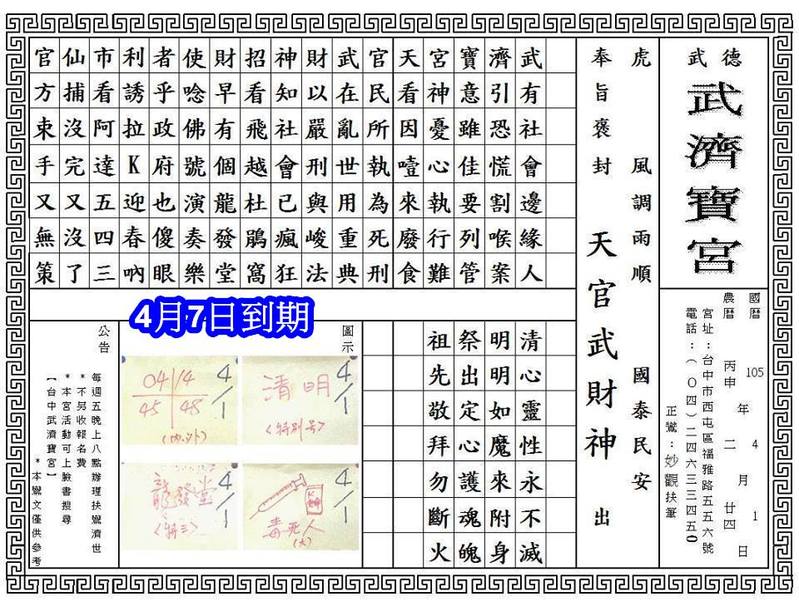 武德
武濟寶宮
國曆 105 年 4 月 1 日
農曆 丙申 二 廿四
宮址：台中市西屯區福雅路五五六號
電話：（０４）二四六三三四五０
正鸞：妙觀扶筆
虎 風調雨順 國泰民安
奉旨褒封 天官武財神 出
武有社會邊緣人
濟引恐慌割喉案
寶意雖佳要列管
宮神憂心執行難
天看因噎來廢食
官民所執為死刑
武在亂世用重典
財以嚴刑與峻法
神知社會已瘋狂
招看飛越杜鵑窩
財早有個龍發堂
使唸佛號演奏樂
者乎政府也傻眼
利誘拉K迎春吶
市看阿達五四三
仙捕沒完又沒了
官方束手又無策
清心靈性永不滅
明明如魔來附身
祭出定心護魂魄
祖先敬拜勿斷火
圖示
4月7日到期
清明
（特別号）
4/1
04 14
45 48
（内,外）
4/1
毒死人
（大）
4/1
龍發堂
（特三）
4/1
公告
每週五晚上八點辦理扶鸞濟世
*不另收報名費
*本宮活動可上臉書搜尋
【台中武濟寶宮】
*本鸞文僅供參考